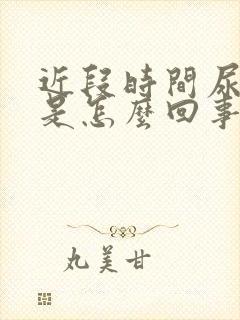 近段時間尿
是怎麼回事
丸美甘